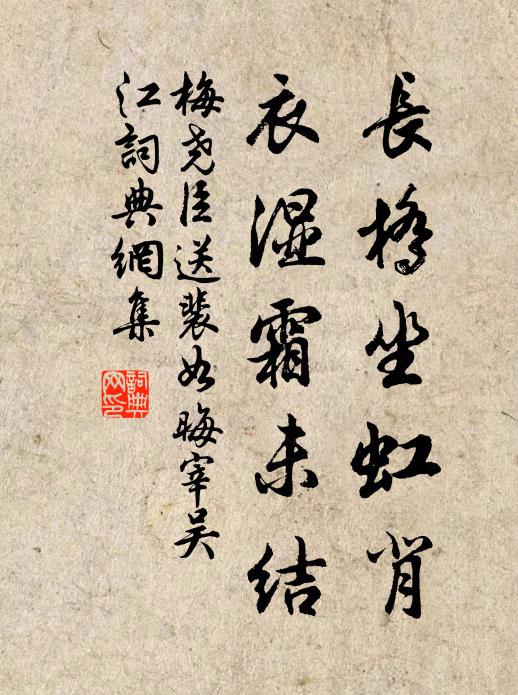 長橋坐虹背
衣湿霜未结
梅尧臣送裴如晦宰吴
江詞典網集
詞典
网印